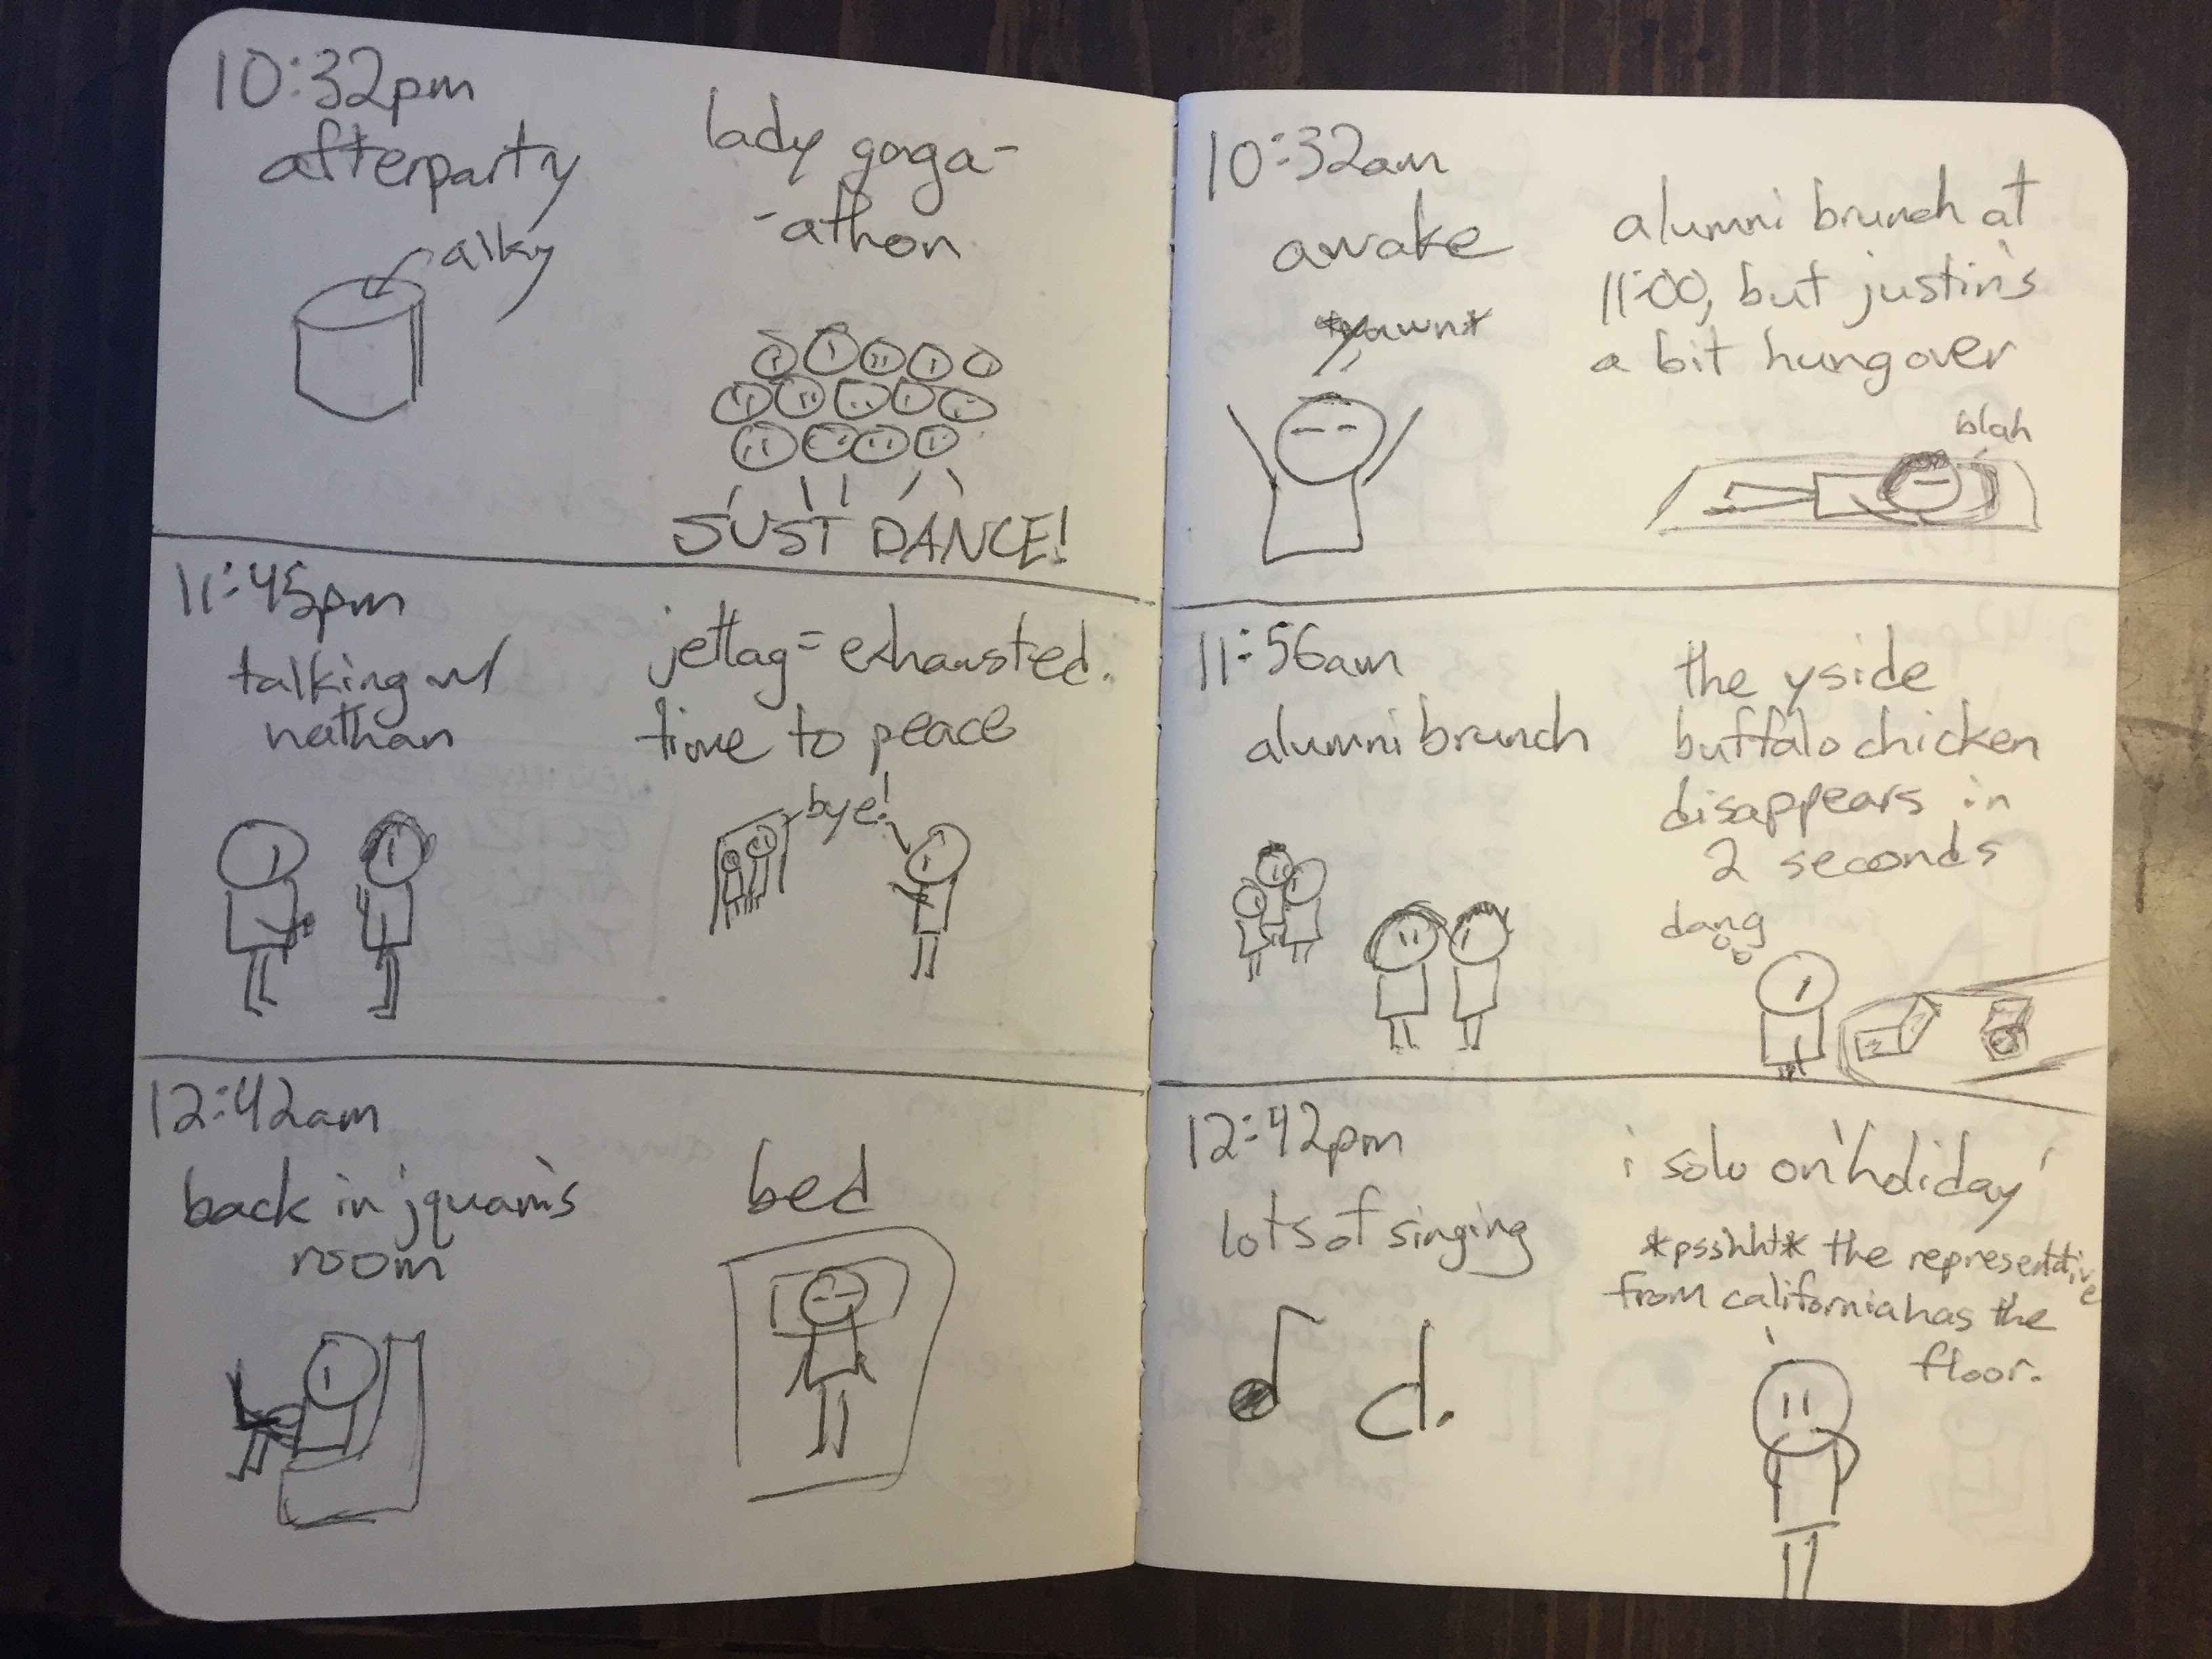 10:32pm
afterparty
alky
lady gaga-
-athon
JUST DANCE!
11:45pm
talking w/
nathan
jetlag = exhausted.
time to peace
bye!
12:42am
back in jquan's
room
bed
10:32am
awake
*yawn*
alumni brunch at
11:00, but justin's
a bit hungover
blah
11:56am
alumni brunch
the yside
buffalo chicken
disappears in
2 seconds
dang
12:42pm
lots of singing
i solo on 'holiday'
*psshht* the representative
from california has the
floor.